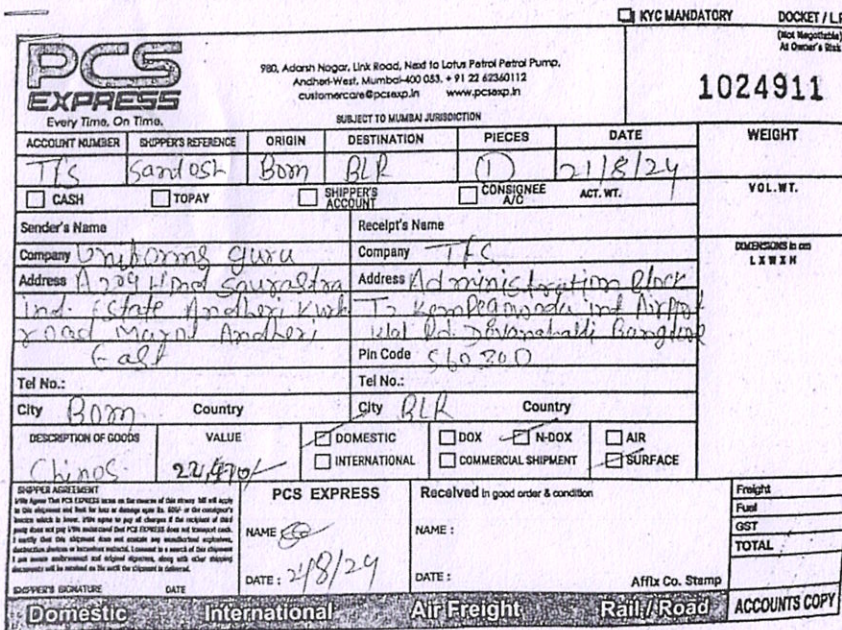 KYC MANDATORY
DOCKET / L.R
(Not Negotiable)
At Owner's Risk
PCS
EXPRESS
Every Time, On Time.
980, Adarsh Nagar, Link Road, Next to Lotus Petrol Petrol Pump,
Andheri-West, Mumbai-400 053. + 91 22 62360112
customercare@pcsexp.in www.pcsexp.in
SUBJECT TO MUMBAI JURISDICTION
1024911
ACCOUNT NUMBER SHIPPER'S REFERENCE ORIGIN DESTINATION PIECES DATE WEIGHT
Tfs Santosh Bom BLR (1) 21/8/24
CASH TOPAY SHIPPER'S ACCOUNT CONSIGNEE A/C ACT. WT. VOL.WT.
Sender's Name Receipt's Name
DIMENSIONS in cm
L X W X H
Company Uniforms guru
Address A229 Hind Saurastra
Ind. Estate Andheri Kurla
road Marol Andheri
East
Company TFS
Address Administration Block
T2 Kempegowda int Airport
Devanahalli Banglore
Pin Code 560300
Tel No.: Tel No.:
City Bom Country City BLR Country
DESCRIPTION OF GOODS VALUE DOMESTIC DOX N-DOX AIR
INTERNATIONAL COMMERCIAL SHIPMENT SURFACE
Chinos 22,470/-
SHIPPER AGREEMENT
SHIPPER'S SIGNATURE DATE
PCS EXPRESS
NAME
DATE : 21/8/24
Received in good order & condition
NAME :
DATE :
Affix Co. Stamp
Freight
Fuel
GST
TOTAL
Domestic International Air Freight Rail / Road
ACCOUNTS COPY